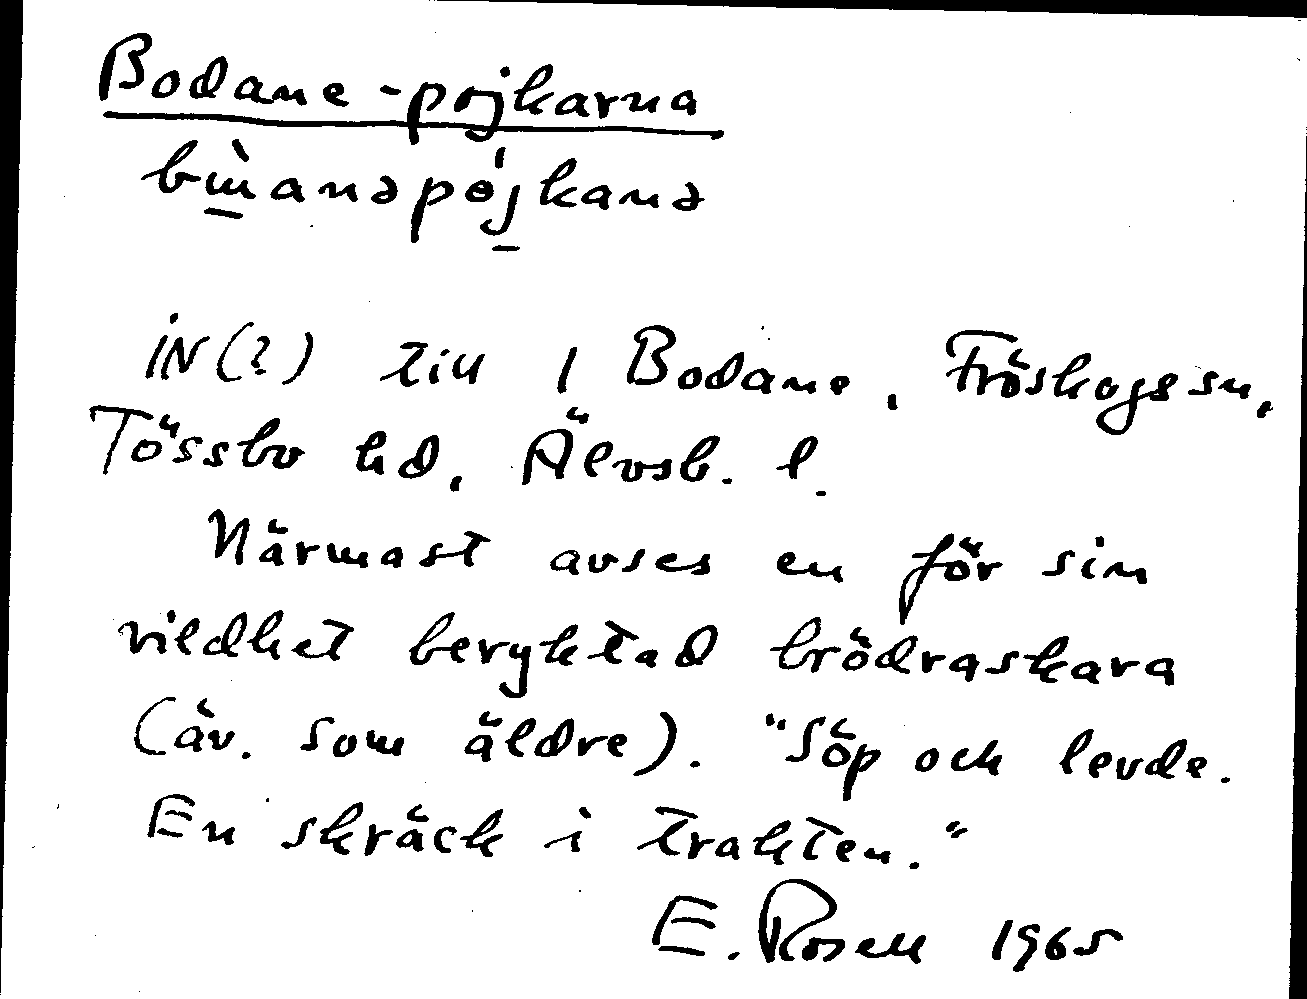 Bodane-pojkarna
bɯ̀anəpö́jkanə
IN(?) till 1 Bodane, Fröskogs sn,
Tössbo hd, Älvsb. l.
Närmast avses en för sin
vildhet beryktad brödraskara
(äv. som äldre). "Söp och levde.
En skräck i trakten."
E. Rosell 1965